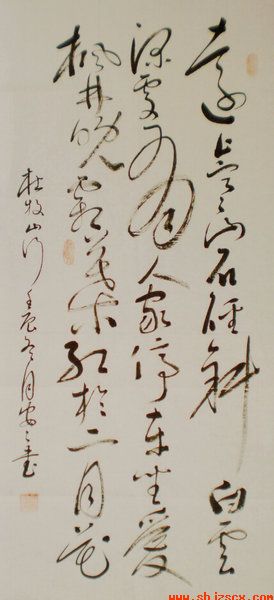 遠上寒山石徑斜白雲
深處有人家停車坐愛
楓林晚霜葉紅於二月花
杜牧山行壬辰冬月書